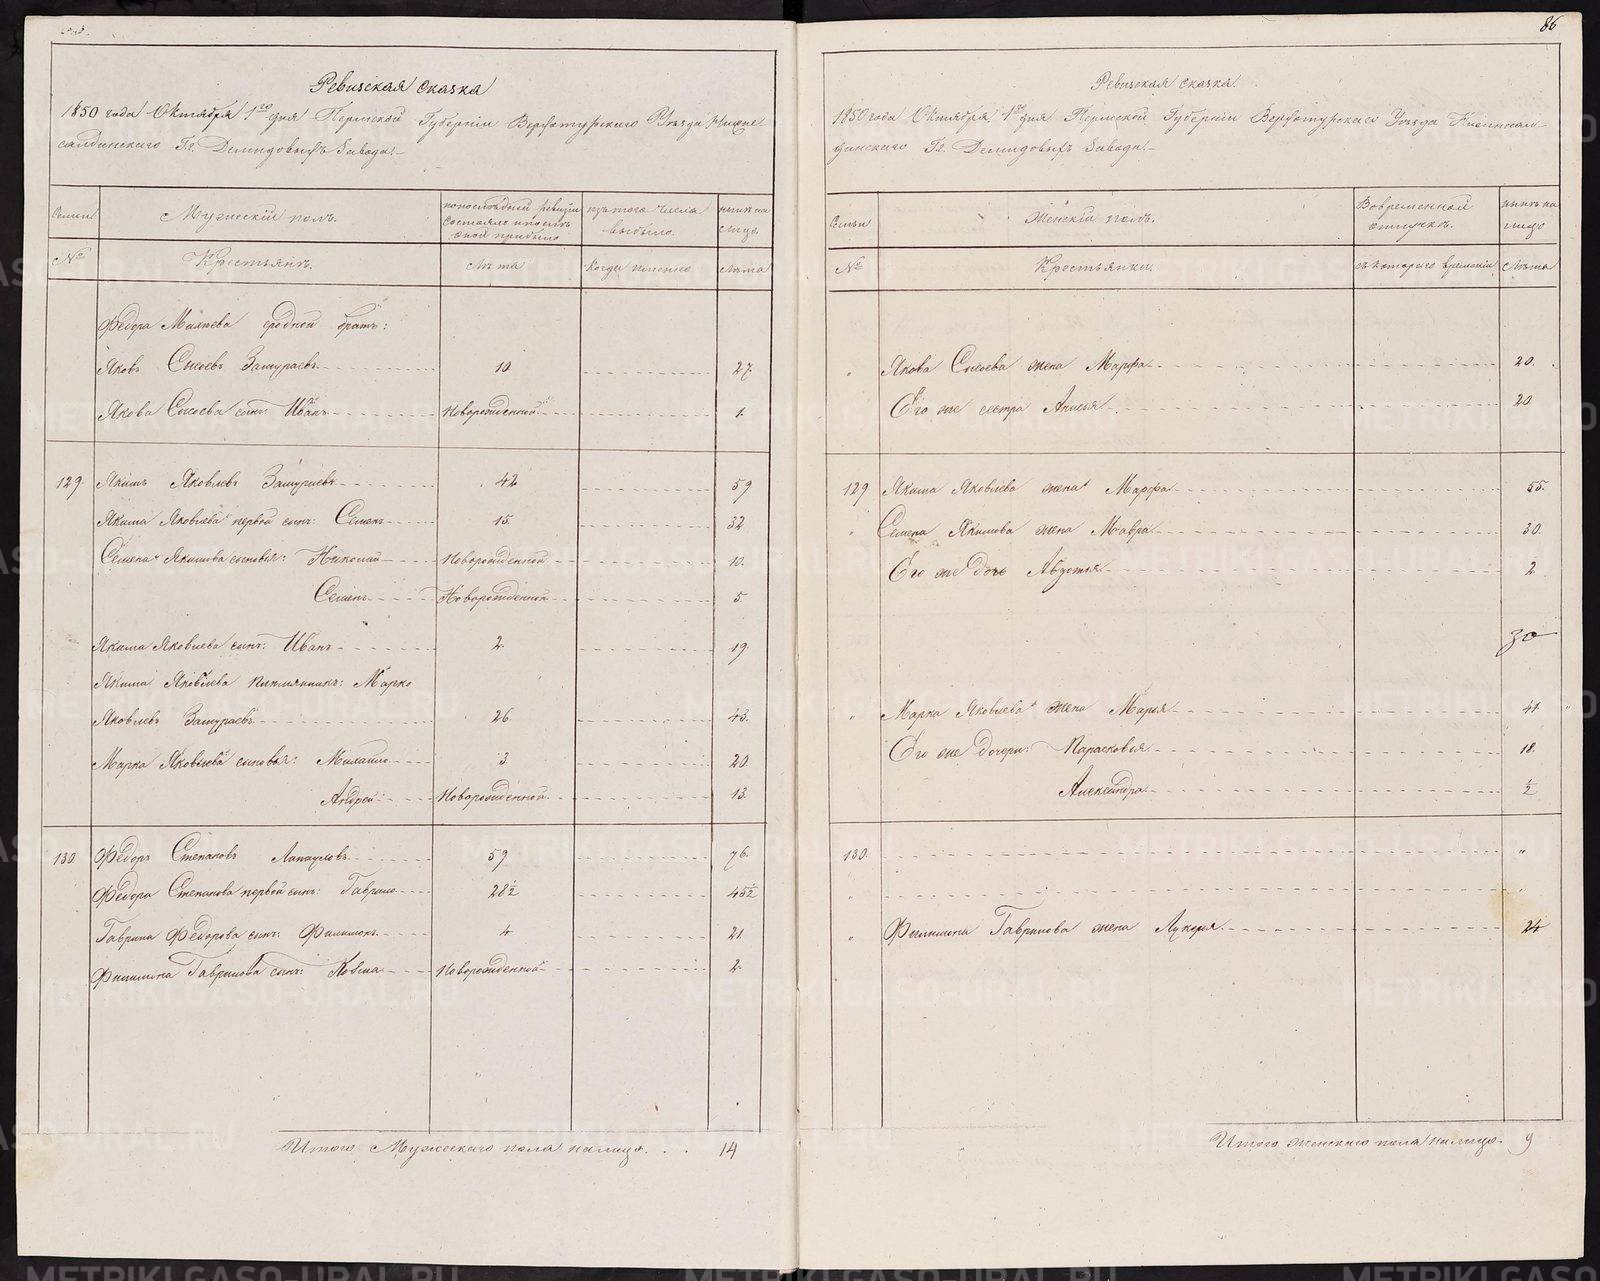 Ревизская сказка
1850 года Октября 1го дня Пермской Губерніи Верхотурскаго Уѣзда Нижне-
салдинскаго Гг. Демидовыхъ завода.
Семьи
Мужескій полъ.
По последней ревизіи состояло и после оной прибыло
изъ того числа выбыло.
нынѣ на лицо.
№
Крестьянъ.
Лѣта
когда именно
Лѣта
Федора Михѣева сродной братъ:
Яковъ Сысоевъ Замураевъ 10 27
Якова Сысоева сынъ Иванъ новорожденной 1.
129. Якимъ Яковлевъ Замураевъ 42 59
Якима Яковлева первой сынъ: Семенъ 15. 32
Семена Якимова сыновья: Николай Новорожденной 10.
Семенъ Новорожденной 5.
Якима Яковлева сынъ: Иванъ 2. 19
Якима Яковлева племянникъ: Марко
Яковлевъ Замураевъ 26 43.
Марка Яковлева сыновья: Михайло 3 20.
Андрей Новорожденной 13.
130 Федоръ Степановъ Лапауховъ 59 76.
Федора Степанова первой сынъ: Гаврило 28½ 45½
Гаврила Федорова сынъ: Филимонъ 4 21
Филимона Гаврилова сынъ: Козма новорожденной 2.
Итого Мужескаго пола на лицо. . . 14
86
Ревизская сказка.
1850 года Октября 1го дня Пермской Губерніи Верхотурскаго Уѣзда Нижнесал-
динскаго Гг. Демидовыхъ завода.
Семьи
Женскій полъ.
Во временной отлучкѣ.
нынѣ на лицо
№
Крестьянки.
съ котораго времени
Лѣта
" Якова Сысоева жена Марфа 20.
Его же сестра Анисья 20
129 Якима Яковлева жена Марфа 55.
" Семена Якимова жена Мавра 30.
Его же дочь Августа 2
30
" Марка Яковлева жена Марья 41
Его же дочери: Парасковья 18.
Александра ½
130. "
" "
" Филимона Гаврилова жена Лукерья 24
Итого женскаго пола на лицо. 9
METRIKI.GASO-URAL.RU